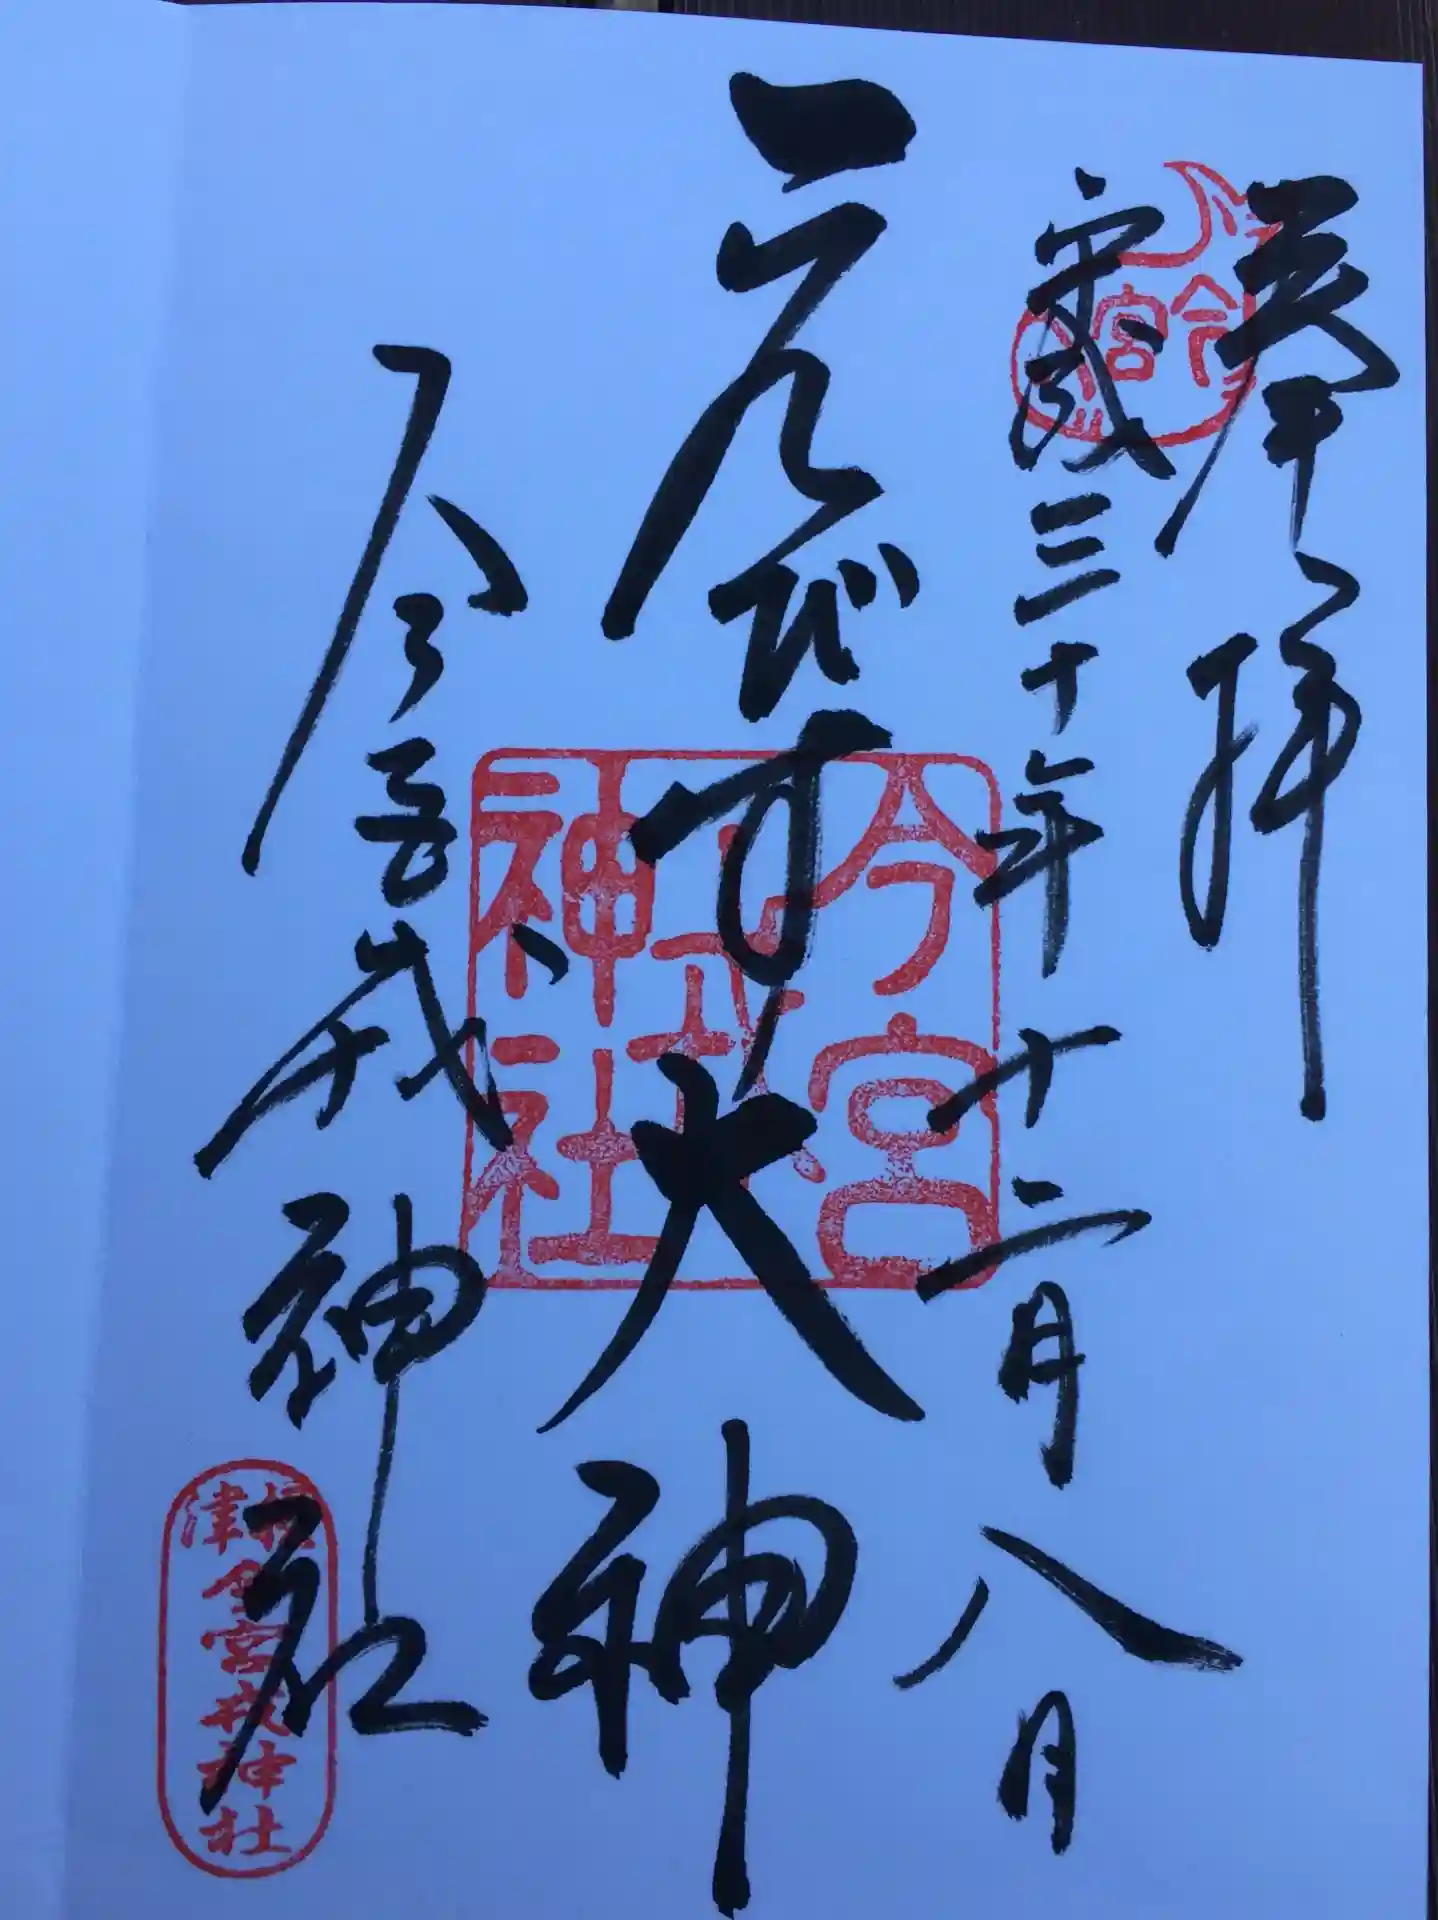 奉拝
今宮
平成三十年十二月八日
えびす大神
今宮戎神社
今宮戎神社
津今宮戎神社